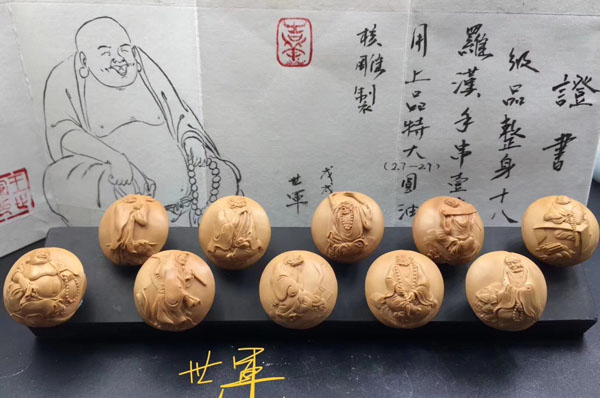 證書
級品整身十八
羅漢手串壹
用上品特大圓油
(2.7-2.9)
核雕製
戊戌
世軍
世軍